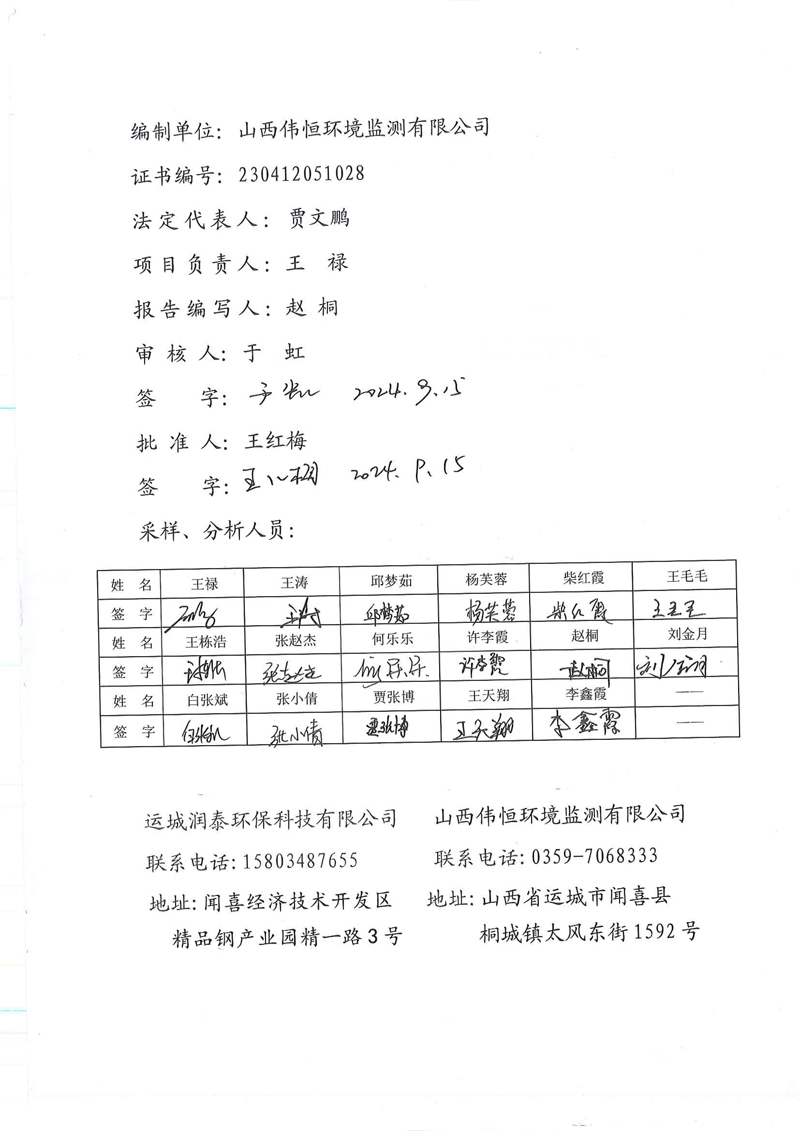 编制单位：山西伟恒环境监测有限公司
证书编号：230412051028
法定代表人：贾文鹏
项目负责人：王 禄
报告编写人：赵 桐
审 核 人：于 虹
签 字： 2024.9.15
批 准 人：王红梅
签 字： 2024.9.15
采样、分析人员：
姓 名 王禄 王涛 邱梦茹 杨芙蓉 柴红霞 王毛毛
签 字 邱梦茹 杨芙蓉 柴红霞 王毛毛
姓 名 王栋浩 张赵杰 何乐乐 许李霞 赵桐 刘金月
签 字 何乐乐 许李霞 赵桐
姓 名 白张斌 张小倩 贾张博 王天翔 李鑫霞 ——
签 字 张小倩 贾张博 王天翔 李鑫霞 ——
运城润泰环保科技有限公司 山西伟恒环境监测有限公司
联系电话：15803487655 联系电话：0359-7068333
地址：闻喜经济技术开发区 地址：山西省运城市闻喜县
精品钢产业园精一路3号 桐城镇太风东街1592号